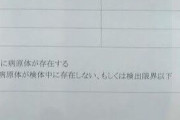 に病原体が存在する
病原体が検体中に存在しない、もしくは検出限界以下